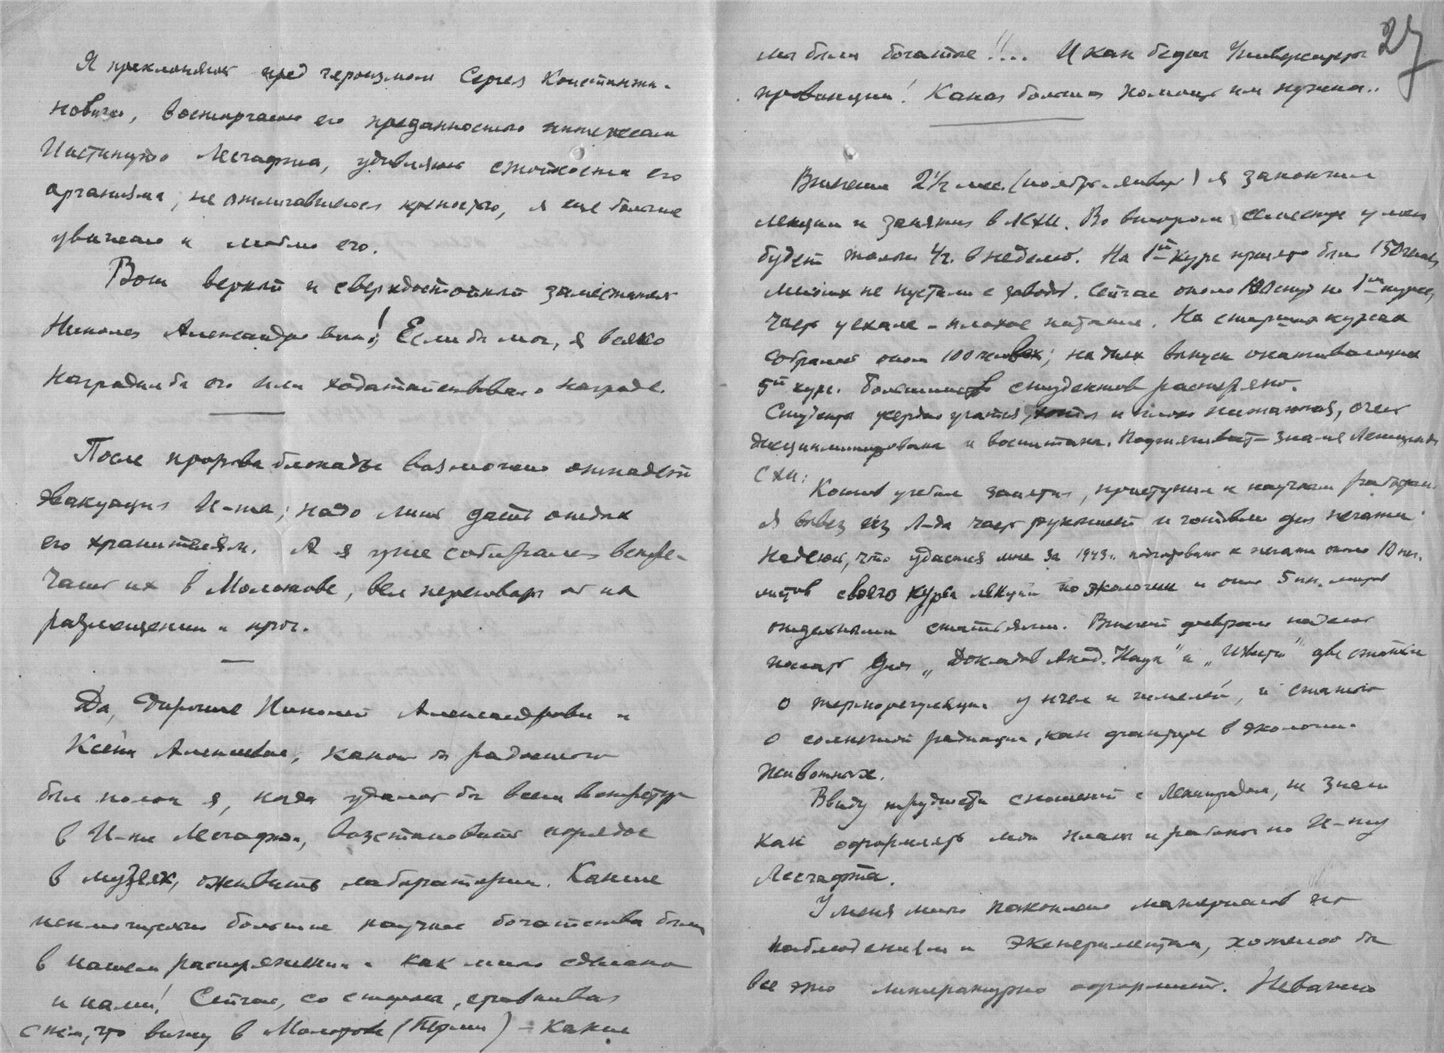 Я преклоняюсь пред героизмом Сергея Константи-
новича, восторгаюсь его преданностью интересам
Института Лесгафта, удивляюсь стойкости его
организма, не отличавшегося крепостью, я еще больше
уважаю и люблю его.
Вот верный и сверхдостойный заместитель
Николая Александровича! Если бы мог, я всяко
наградил бы его или ходатайствовал о награде.
После прорыва блокады возможно отпадет
эвакуация И-та; надо лишь дать отдых
его хранителям. А я уже собирался встре-
чать их в Молотове, вел переговоры об их
размещении и проч.
Да, дорогие Николай Александрович и
Ксения Алексеевна, какой бы радостью
был полон я, когда удалось бы всем вернуться
в И-т Лесгафта, восстановить порядок
в музеях, оживить лаборатории. Какие
неимоверно большие научные богатства были
в нашем распоряжении и как мало сделано
и нами! Сейчас, со стороны, сравнивая
с тем, что вижу в Молотове (Перми) – какие
27
мы были богатые!!... И как бедны Университеты
провинции! Какая большая помощь им нужна..
В течение 2½ мес. (ноябрь-январь) я закончил
лекции и занятия в МСХИ. Во втором семестре у меня
будет только 4 ч. в неделю. На 1ый курс принято было 150 человек,
многих не пустили с завода. Сейчас около 100 студ. на 1ом курсе,
часть уехала – плохое питание. На старших курсах
собралось около 100 человек; на днях выпуск оканчивающих
5ый курс. Большинство студентов растеряно.
Студенты усердно учатся, хотя и плохо питаются, очень
дисциплинированы и воспитаны. Поддерживают знамя Ленинград.
СХИ.
Кончив учебные занятия, приступил к научным работам.
Я вывез из Л-да часть рукописей и готовлю для печати.
Надеюсь, что удастся мне за 1943 г. подготовить к печати около 10 печ.
листов своего курса лекций по экологии и около 5 печ. листов
отдельными статьями. В течение февраля надеюсь
послать для „Докладов Акад. Наук" и две статьи
о терморегуляции у пчел и шмелей, и статью
о солнечной радиации, как факторе в экологии
животных.
Ввиду трудности сношений с Ленинградом, не знаю
как оформлять мои планы и работы по И-ту
Лесгафта.
У меня много накоплено материалов по
наблюдениям и экспериментам, хотелось бы
все это литературно оформить. Неважно